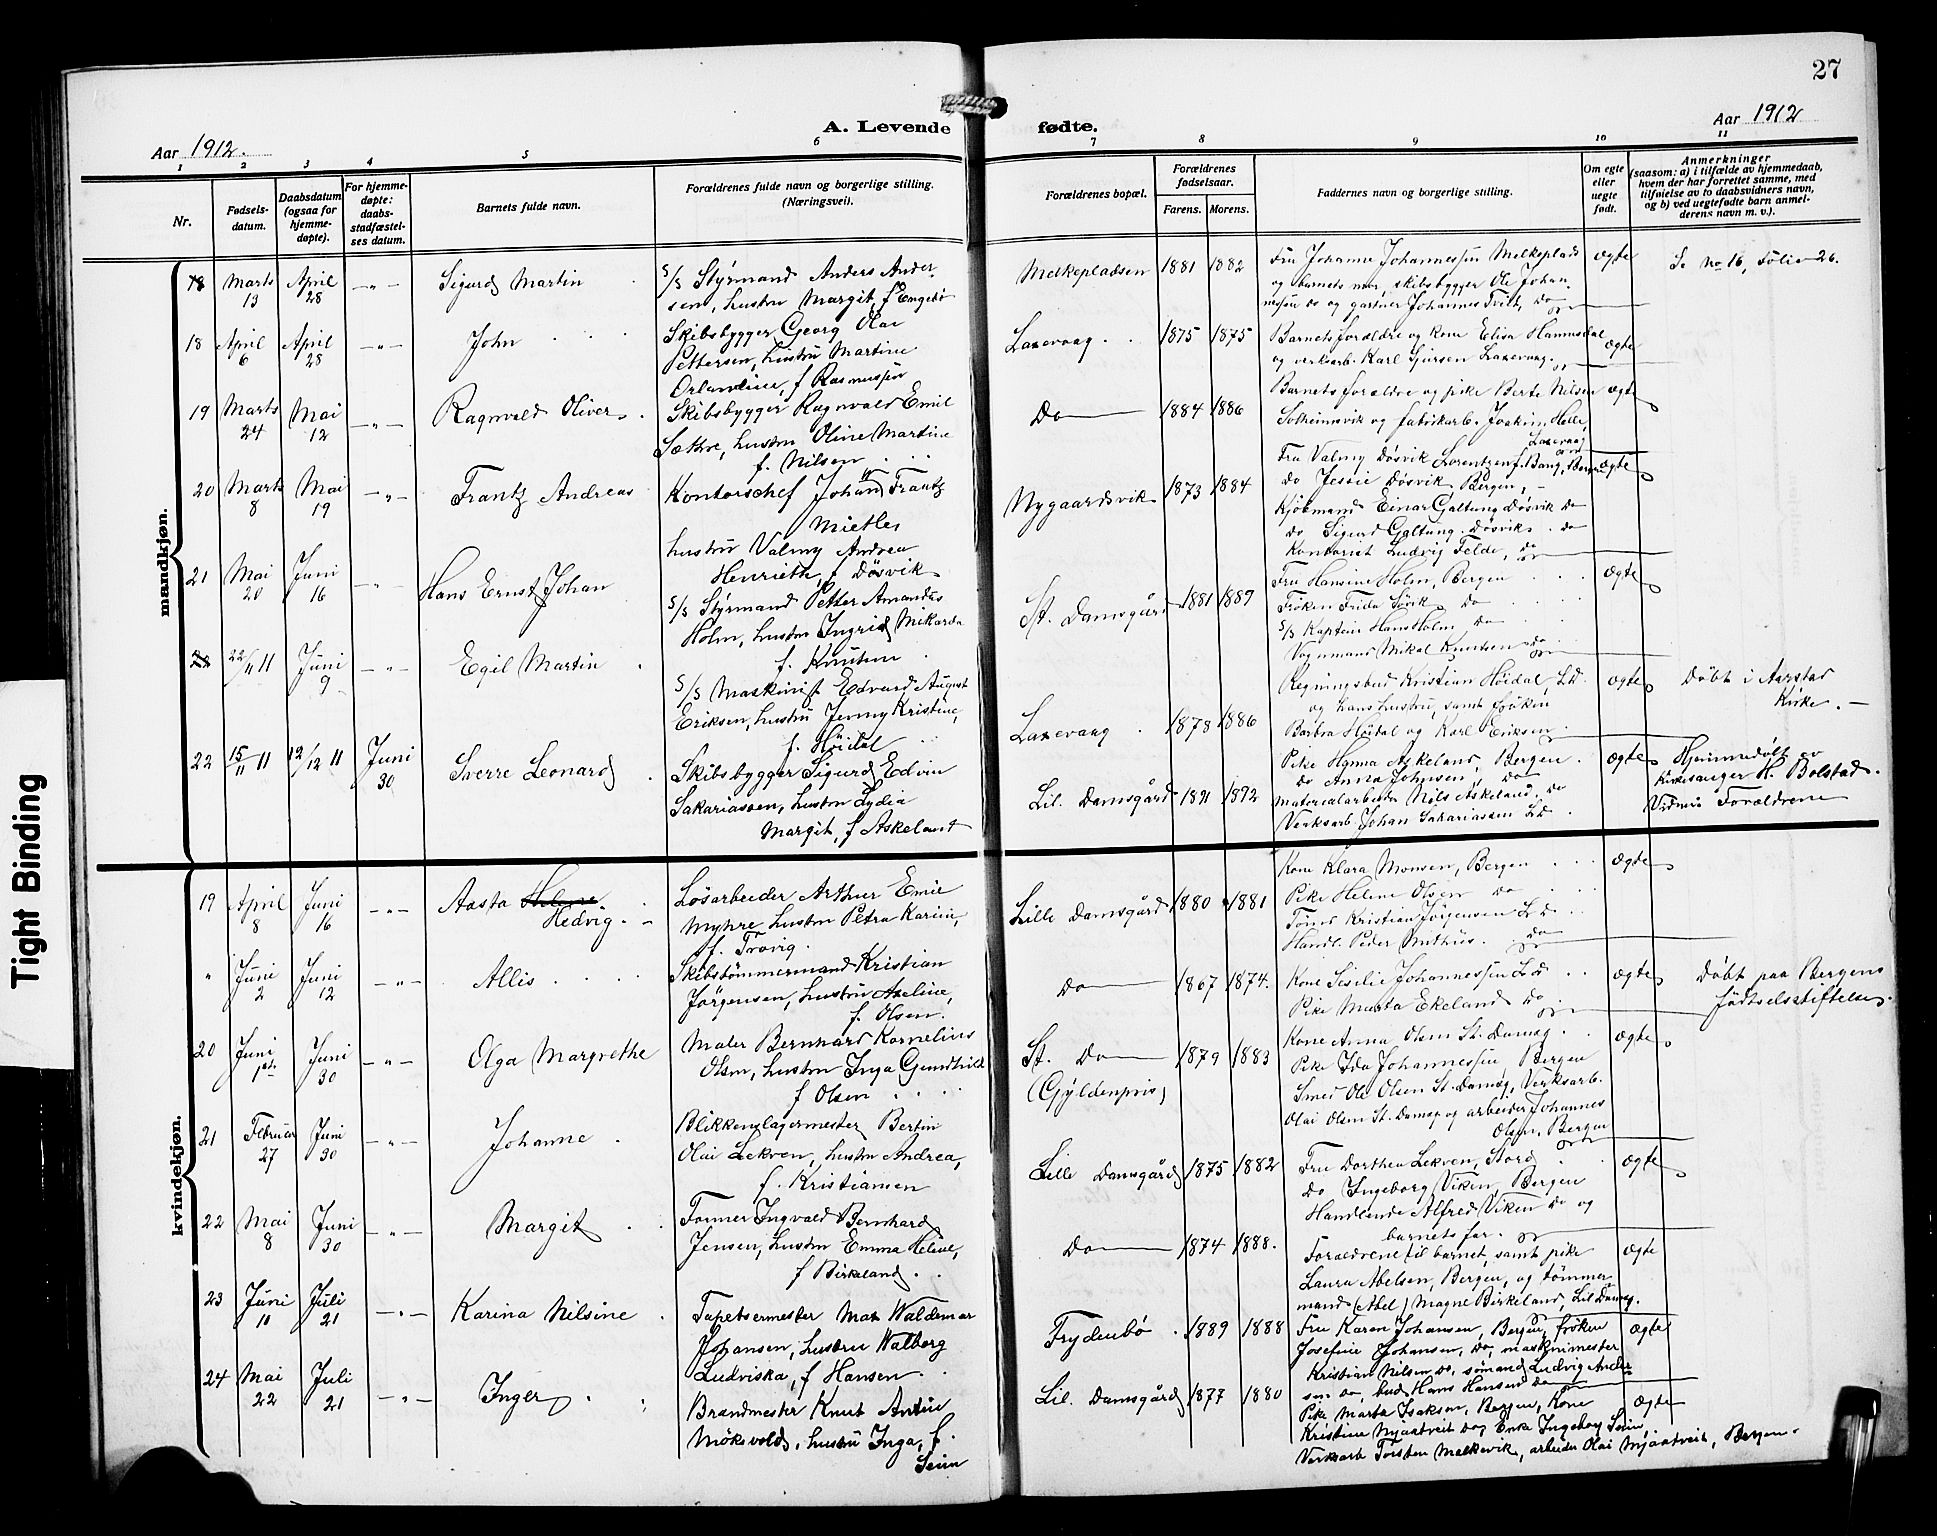 27
Aar 1912.
A. Levende
fødte.
Aar 1912
1 2 3 4 5 6 7 8 9 10 11
Nr.
Fødsels-
datum.
Daabsdatum
(ogsaa for
hjemme-
døpte).
For hjemme-
døpte:
daabs-
stadfæstel-
ses datum.
Barnets fulde navn.
Forældrenes fulde navn og borgerlige stilling.
(Næringsvei).
Forældrenes bopæl.
Forældrenes
fødselsaar.
Farens. Morens.
Faddernes navn og borgerlige stilling.
Om egte
eller
uegte
født.
Anmerkninger
(saasom: a) i tilfælde av hjemmedaab,
hvem der har forrettet samme, med
tilføielse av to daabsvidners navn,
og b) ved uegtefødte barn anmel-
derens navn m. v.).
mandkjøn.
18 Marts 13 April 28 -"- Sigurd Martin
S/S Styrmand Anders Ander-
sen, hustru Margit, f. Engebø
Melkepladsen 1881 1882
Fru Johanna Johannessen Melkeplads
og barnets mor, skibsbygger Ole Johan-
nessen do og gartner Johannes Tvilt, do
Ægte
Se no 16, Folie 26.
18 April 6 April 28 -"- John
Skibsbygger Georg Olai
Pettersen, hustru Martine
Orlandine, f Rasmussen
Laxevaag. 1875 1875
Barnets forældre og kone Elisa Hammersdal
og verksarb. Karl Sjursen Laxevaag.
Ægte
19 Marts 24 Mai 12 -"- Ragnvald Oliver
Skibsbygger Ragnvald Emil
Sæthre, hustru Oline Martine
f. Nilsen
Do 1884 1886
Barnets forældre og pike Berte Nilsen
Solheimsvik og fabrikarb. Joakim Helle,
Laxevaag
Ægte
20 Marts 8 Mai 19 -"- Frantz Andreas
Kontorschef Johan Frantz
Mietles
hustru Valmy Andrea
Henriette, f Døsvik
Nygaardsvik 1873 1884
Fru Valmy Døsvik Lorentzen f. Bang, Bergen
do Jessie Døsvik Bergen,
Kjøbmand Einar Galtung Døsvik Do
Do Sigurd Galtung Døsvik. do
Kontorist Ludvig Felde, do
Ægte
21 Mai 20 Juni 16 -"- Hans Ernst Johan
S/S Styrmand Petter Amandus
Holm, hustru Ingrid Mikarda
f. Knutsen
St. Damsgård 1881 1889
Fru Hansine Holm, Bergen
Frøken Frida Søvik Do
S/S Kaptein Hans Holm Do
Vognmand Mikal Knutsen do
Ægte
22 22/11 11 Juni 9 -"- Egil Martin
S/S Maskinist Edvard August
Eriksen, hustru Jenny Kristine,
f. Høidal
Laxevaag 1878 1886
Regningsbud Kristian Høidal, L.D.
og hans hustru, samt frøken
Barbra Høidal og Karl Eriksen
Ægte
Døbt i Aarstad
Kirke.
22 15/11 11 12/12 11 Juni 30 Sverre Leonard
Skibsbygger Sigurd Edvin
Sakariassen, hustru Lydia
Margit, f Askeland
Lil. Damsgård 1891 1892
Pike Hanna Askeland, Bergen
do Anna Johnsen, do
Materialarbeider Nils Askeland. do
Verksarb. Johan Sakariassen L.D.
Ægte
Hjemmedøbt av
Kirkesanger H. Bolstad.
Vidner: Forældrene
kvindekjøn.
19 April 8 Juni 16 -"- Aasta Helene
Hedvig.
Løsarbeider Arthur Emil
Myhre hustru Petra Karine,
f. Trovig.
Lille Damsgård 1880 1881
Kone Klara Monsen, Bergen
Pike Helene Olsen Do
Tømr Kristian Jørgensen L.D.
Handl. Peder Midthus. do
Ægte
" Juni 2 Juni 12 -"- Allis
Skibstømmermand Kristian
Jørgensen, hustru Axeline,
f. Olsen.
Do 1867 1874.
Kone Sesilie Johannessen L.D.
Pike Marta Ekeland Do
Ægte
Døbt paa Bergens
Fødtselsstiftelse.
20 Juni 1ste Juni 30 -"- Olga Margrethe
Maler Bernhard Kornelius
Olsen, hustru Inga Gundhild
f Olsen
St. Do
(Gyldenpris)
1879 1883
Kone Anna Olsen St. Damsg.
Pike Ida Johannessen, Bergen
Smed Ole Olsen St. Damsg, Verksarb.
Olai Olsen St. Damsg og arbeider Johannes
Olsen, Bergen
Ægte
21 Februar 27 Juni 30 -"- Johanne
Blikkenslagermester Bertin
Olai Lekven, hustru Andrea,
f. Kristiansen
Lille Damsgård 1875 1882
Fru Dorthea Lekven, Stord
Do Ingeborg Viken, Bergen
Handlende Alfred Viken Do og
barnets far.
Ægte
22 Mai 8 Juni 30 -"- Margit
Former Ingvald Bernhard
Jensen, hustru Emma Helene,
f Birkeland
Do 1874 1888.
Forældrene til barnet, samt pike
Laura Abelsen, Bergen, og tømmer-
mand (Abel) Magne Birkeland, Lil Damsg.
Ægte
23 Juni 10 Juli 21 -"- Karina Nilsine
Tapetsermester Max Waldemar
Johansen, hustru Walborg
Ludviska, f Hansen
Frydenbö 1889 1888
Fru Karen Johansen, Bergen, frøken
Josefine Johansen, Do, maskinmester
Kristian Nilsen do, sømand Ludvig Ander-
sen do, bud Hans Hansen do
Ægte
24 Mai 22 Juli 21 -"- Inger
Brandmester Knut Antin
Møksvold, hustru Inga, f.
Seim
Lil. Damsgård 1877 1880
Pike Marta Isaksen, Bergen, Kone
Kristine Mjaatveit Do, Enke Ingeborg Seim,
Verksarb Torsten Melkevik, arbeider Olai Mjaatveit, Bergen.
Ægte
Tight Binding